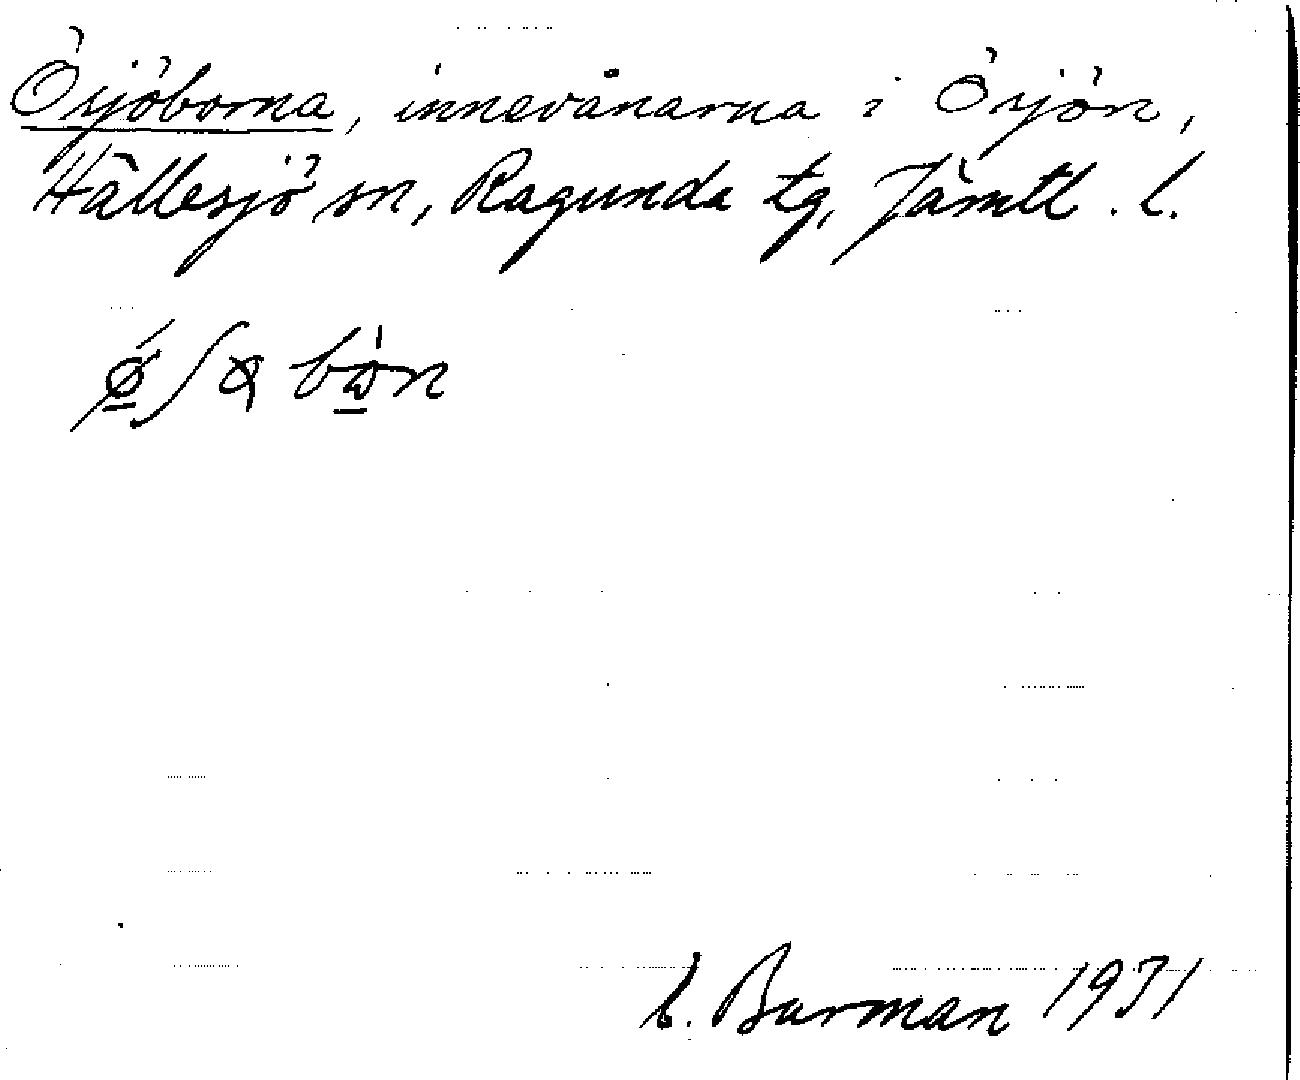 Ösjöborna, innevånarna i Ösjön,
Hällesjö sn, Ragunda tg, Jämtl. l.
Burman